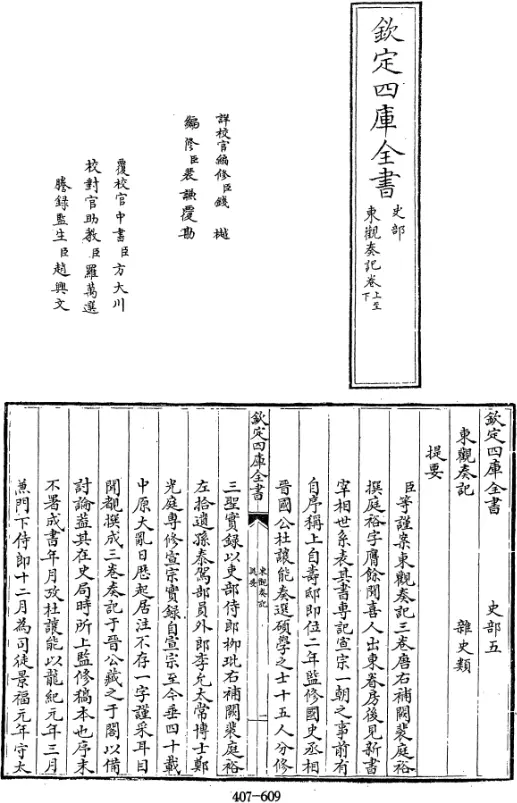 欽定四庫全書 史部 東觀奏記卷上至下
詳校官編修臣錢樾
編修臣裴謙覆勘
覆校官中書臣方大川
校對官助教臣羅萬選
謄録監生臣趙興文
欽定四庫全書 史部五
東觀奏記 雜史類
提要
臣等謹案東觀奏記三卷唐右補闕裴庭裕
撰庭裕字膺餘聞喜人出東眷房後見新書
宰相世系表其書專記宣宗一朝之事前有
自序稱上自壽邸即位二年監修國史丞相
晉國公杜讓能奏選碩學之士十五人分修
欽定四庫全書 東觀奏記 提要 一
三聖實録以吏部侍郎柳玭右補闕裴庭裕
左拾遺孫泰駕部員外郎李允太常博士鄭
光庭専修宣宗實録自宣宗至今垂四十載
中原大亂日歴起居注不存一字謹采耳目
聞覩撰成三卷奏記于晉公藏之于閣以備
討論蓋其在史局時所上監修稿本也序末
不署成書年月攷杜讓能以龍紀元年三月
兼門下侍郎十二月為司徒景福元年守太
407-609